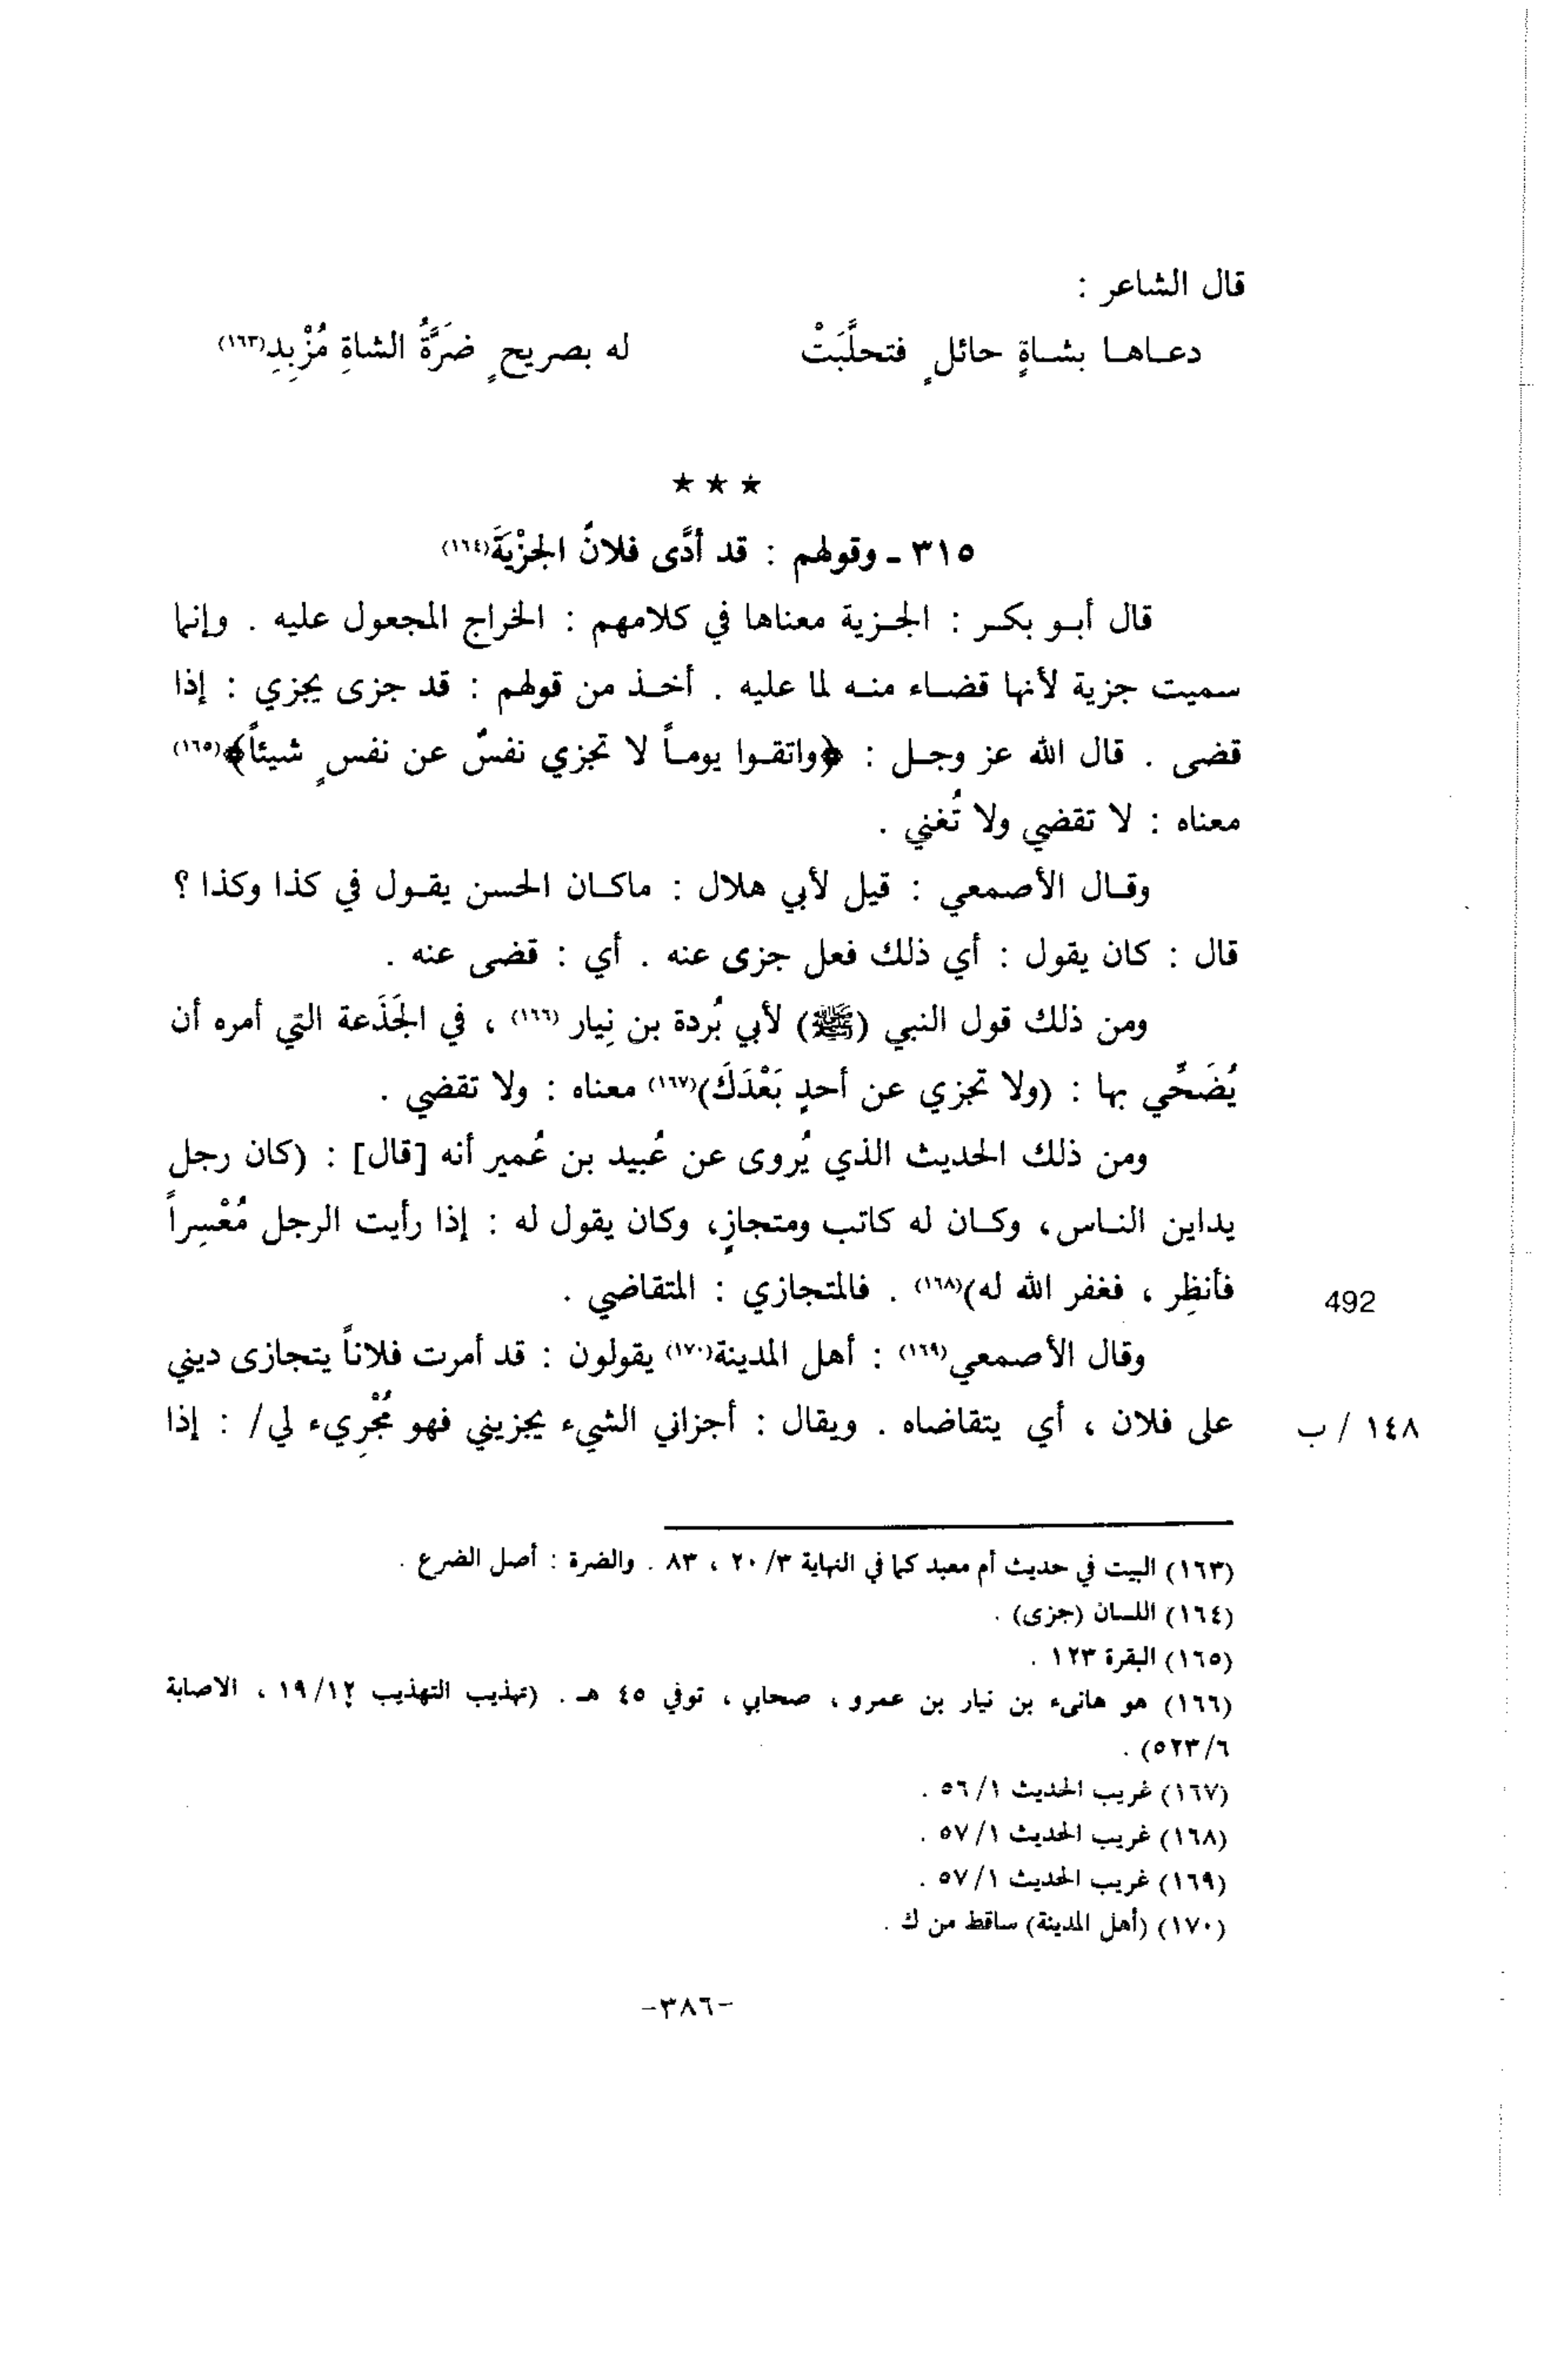 قال الشاعر :
دعـاهـا بشـاةٍ حائلٍ فتحلَّبَتْ له بصريحٍ ضَرَّةُ الشاةِ مُزْبِدِ(١٦٣)
★ ★ ★
٣١٥ ـ وقولهم : قد أدَّى فلانٌ الجزْيَةَ(١٦٤)
قال أبـو بكـر : الجـزية معناها في كلامهم : الخراج المجعول عليه . وإنما
سميت جزية لأنها قضـاء منـه لما عليه . أخـذ من قولهم : قد جزى يجزي : إذا
قضى . قال الله عز وجـل : ﴿واتقـوا يومـاً لا تجزي نفسٌ عن نفسٍ شيئاً﴾(١٦٥)
معناه : لا تقضي ولا تُغني .
وقـال الأصمعي : قيل لأبي هلال : ماكـان الحسن يقـول في كذا وكذا ؟
قال : كان يقول : أي ذلك فعل جزى عنه . أي : قضى عنه .
ومن ذلك قول النبي (ﷺ) لأبي بُردة بن نِيار (١٦٦) ، في الجَذَعة التي أمره أن
يُضَحِّي بها : (ولا تجزي عن أحدٍ بَعْدَكَ)(١٦٧) معناه : ولا تقضي .
ومن ذلك الحديث الذي يُروى عن عُبيد بن عُمير أنه [قال] : (كان رجل
يداين النـاس، وكـان له كاتب ومتجازٍ، وكان يقول له : إذا رأيت الرجل مُعْسِراً
فأنظِر ، فغفر الله له)(١٦٨) . فالمتجازي : المتقاضي .
492
وقال الأصمعي(١٦٩) : أهل المدينة(١٧٠) يقولون : قد أمرت فلاناً يتجازى ديني
على فلان ، أي يتقاضاه . ويقال : أجزاني الشيء يجزيني فهو مُجْرِيء لي/ : إذا
١٤٨ / ب
(١٦٣) البيت في حديث أم معبد كما في النهاية ٣/ ٢٠ ، ٨٣ . والضرة : أصل الضرع .
(١٦٤) اللسان (جزى) .
(١٦٥) البقرة ١٢٣ .
(١٦٦) هو هانىء بن نيار بن عمرو ، صحابي ، توفي ٤٥ هـ . (تهذيب التهذيب ١٢/ ١٩ ، الاصابة
٦/ ٥٢٣) .
(١٦٧) غريب الحديث ١/ ٥٦ .
(١٦٨) غريب الحديث ١/ ٥٧ .
(١٦٩) غريب الحديث ١/ ٥٧ .
(١٧٠) (أهل المدينة) ساقط من ك .
-٣٨٦-